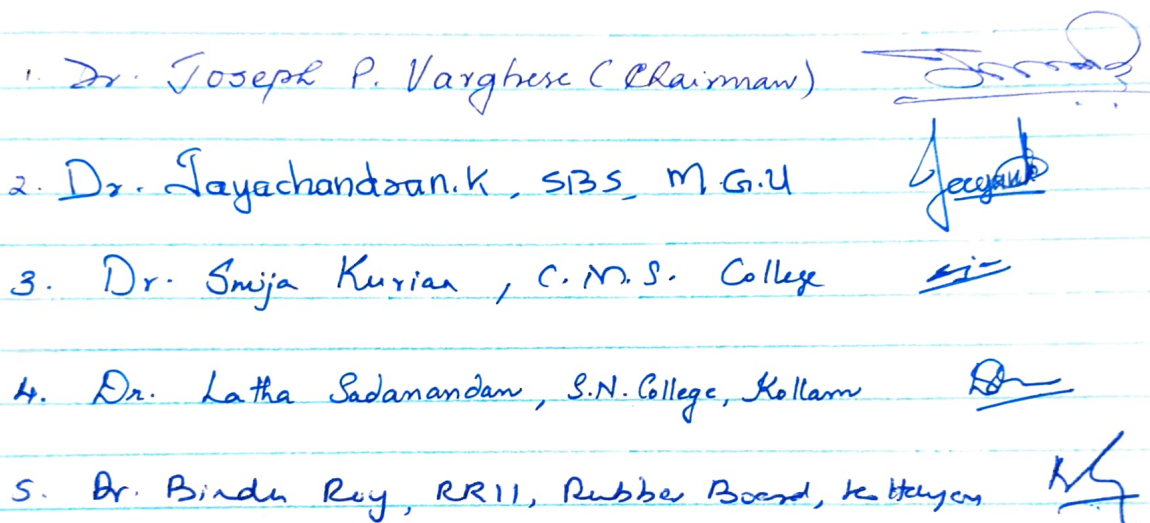 1. Dr. Joseph P. Varghese (Chairman)
2. Dr. Jayachandran.K, SBS, M.G.U
3. Dr. Smija Kurian, C.M.S. College
4. Dr. Latha Sadanandan, S.N. College, Kollam
5. Dr. Bindu Roy, RRII, Rubber Board, Kottayam